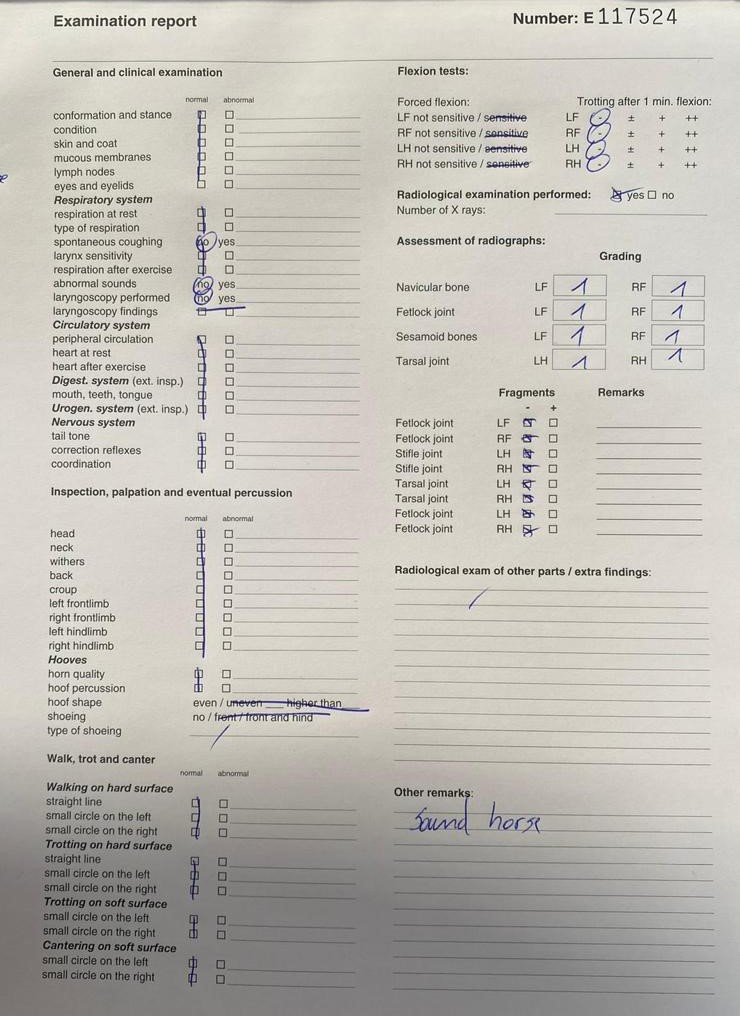 Examination report
Number: E 117524
General and clinical examination
normal abnormal
conformation and stance
condition
skin and coat
mucous membranes
lymph nodes
eyes and eyelids
Respiratory system
respiration at rest
type of respiration
spontaneous coughing no yes
larynx sensitivity
respiration after exercise
abnormal sounds no yes
laryngoscopy performed no yes
laryngoscopy findings
Circulatory system
peripheral circulation
heart at rest
heart after exercise
Digest. system (ext. insp.)
mouth, teeth, tongue
Urogen. system (ext. insp.)
Nervous system
tail tone
correction reflexes
coordination
Inspection, palpation and eventual percussion
normal abnormal
head
neck
withers
back
croup
left frontlimb
right frontlimb
left hindlimb
right hindlimb
Hooves
horn quality
hoof percussion
hoof shape even / uneven ___ higher than
shoeing no / front / front and hind
type of shoeing /
Walk, trot and canter
normal abnormal
Walking on hard surface
straight line
small circle on the left
small circle on the right
Trotting on hard surface
straight line
small circle on the left
small circle on the right
Trotting on soft surface
small circle on the left
small circle on the right
Cantering on soft surface
small circle on the left
small circle on the right
Flexion tests:
Forced flexion: Trotting after 1 min. flexion:
LF not sensitive / sensitive LF - ± + ++
RF not sensitive / sensitive RF - ± + ++
LH not sensitive / sensitive LH - ± + ++
RH not sensitive / sensitive RH - ± + ++
Radiological examination performed: yes no
Number of X rays:
Assessment of radiographs:
Grading
Navicular bone LF 1 RF 1
Fetlock joint LF 1 RF 1
Sesamoid bones LF 1 RF 1
Tarsal joint LH 1 RH 1
Fragments Remarks
- +
Fetlock joint LF
Fetlock joint RF
Stifle joint LH
Stifle joint RH
Tarsal joint LH
Tarsal joint RH
Fetlock joint LH
Fetlock joint RH
Radiological exam of other parts / extra findings:
/
Other remarks:
Sound horse